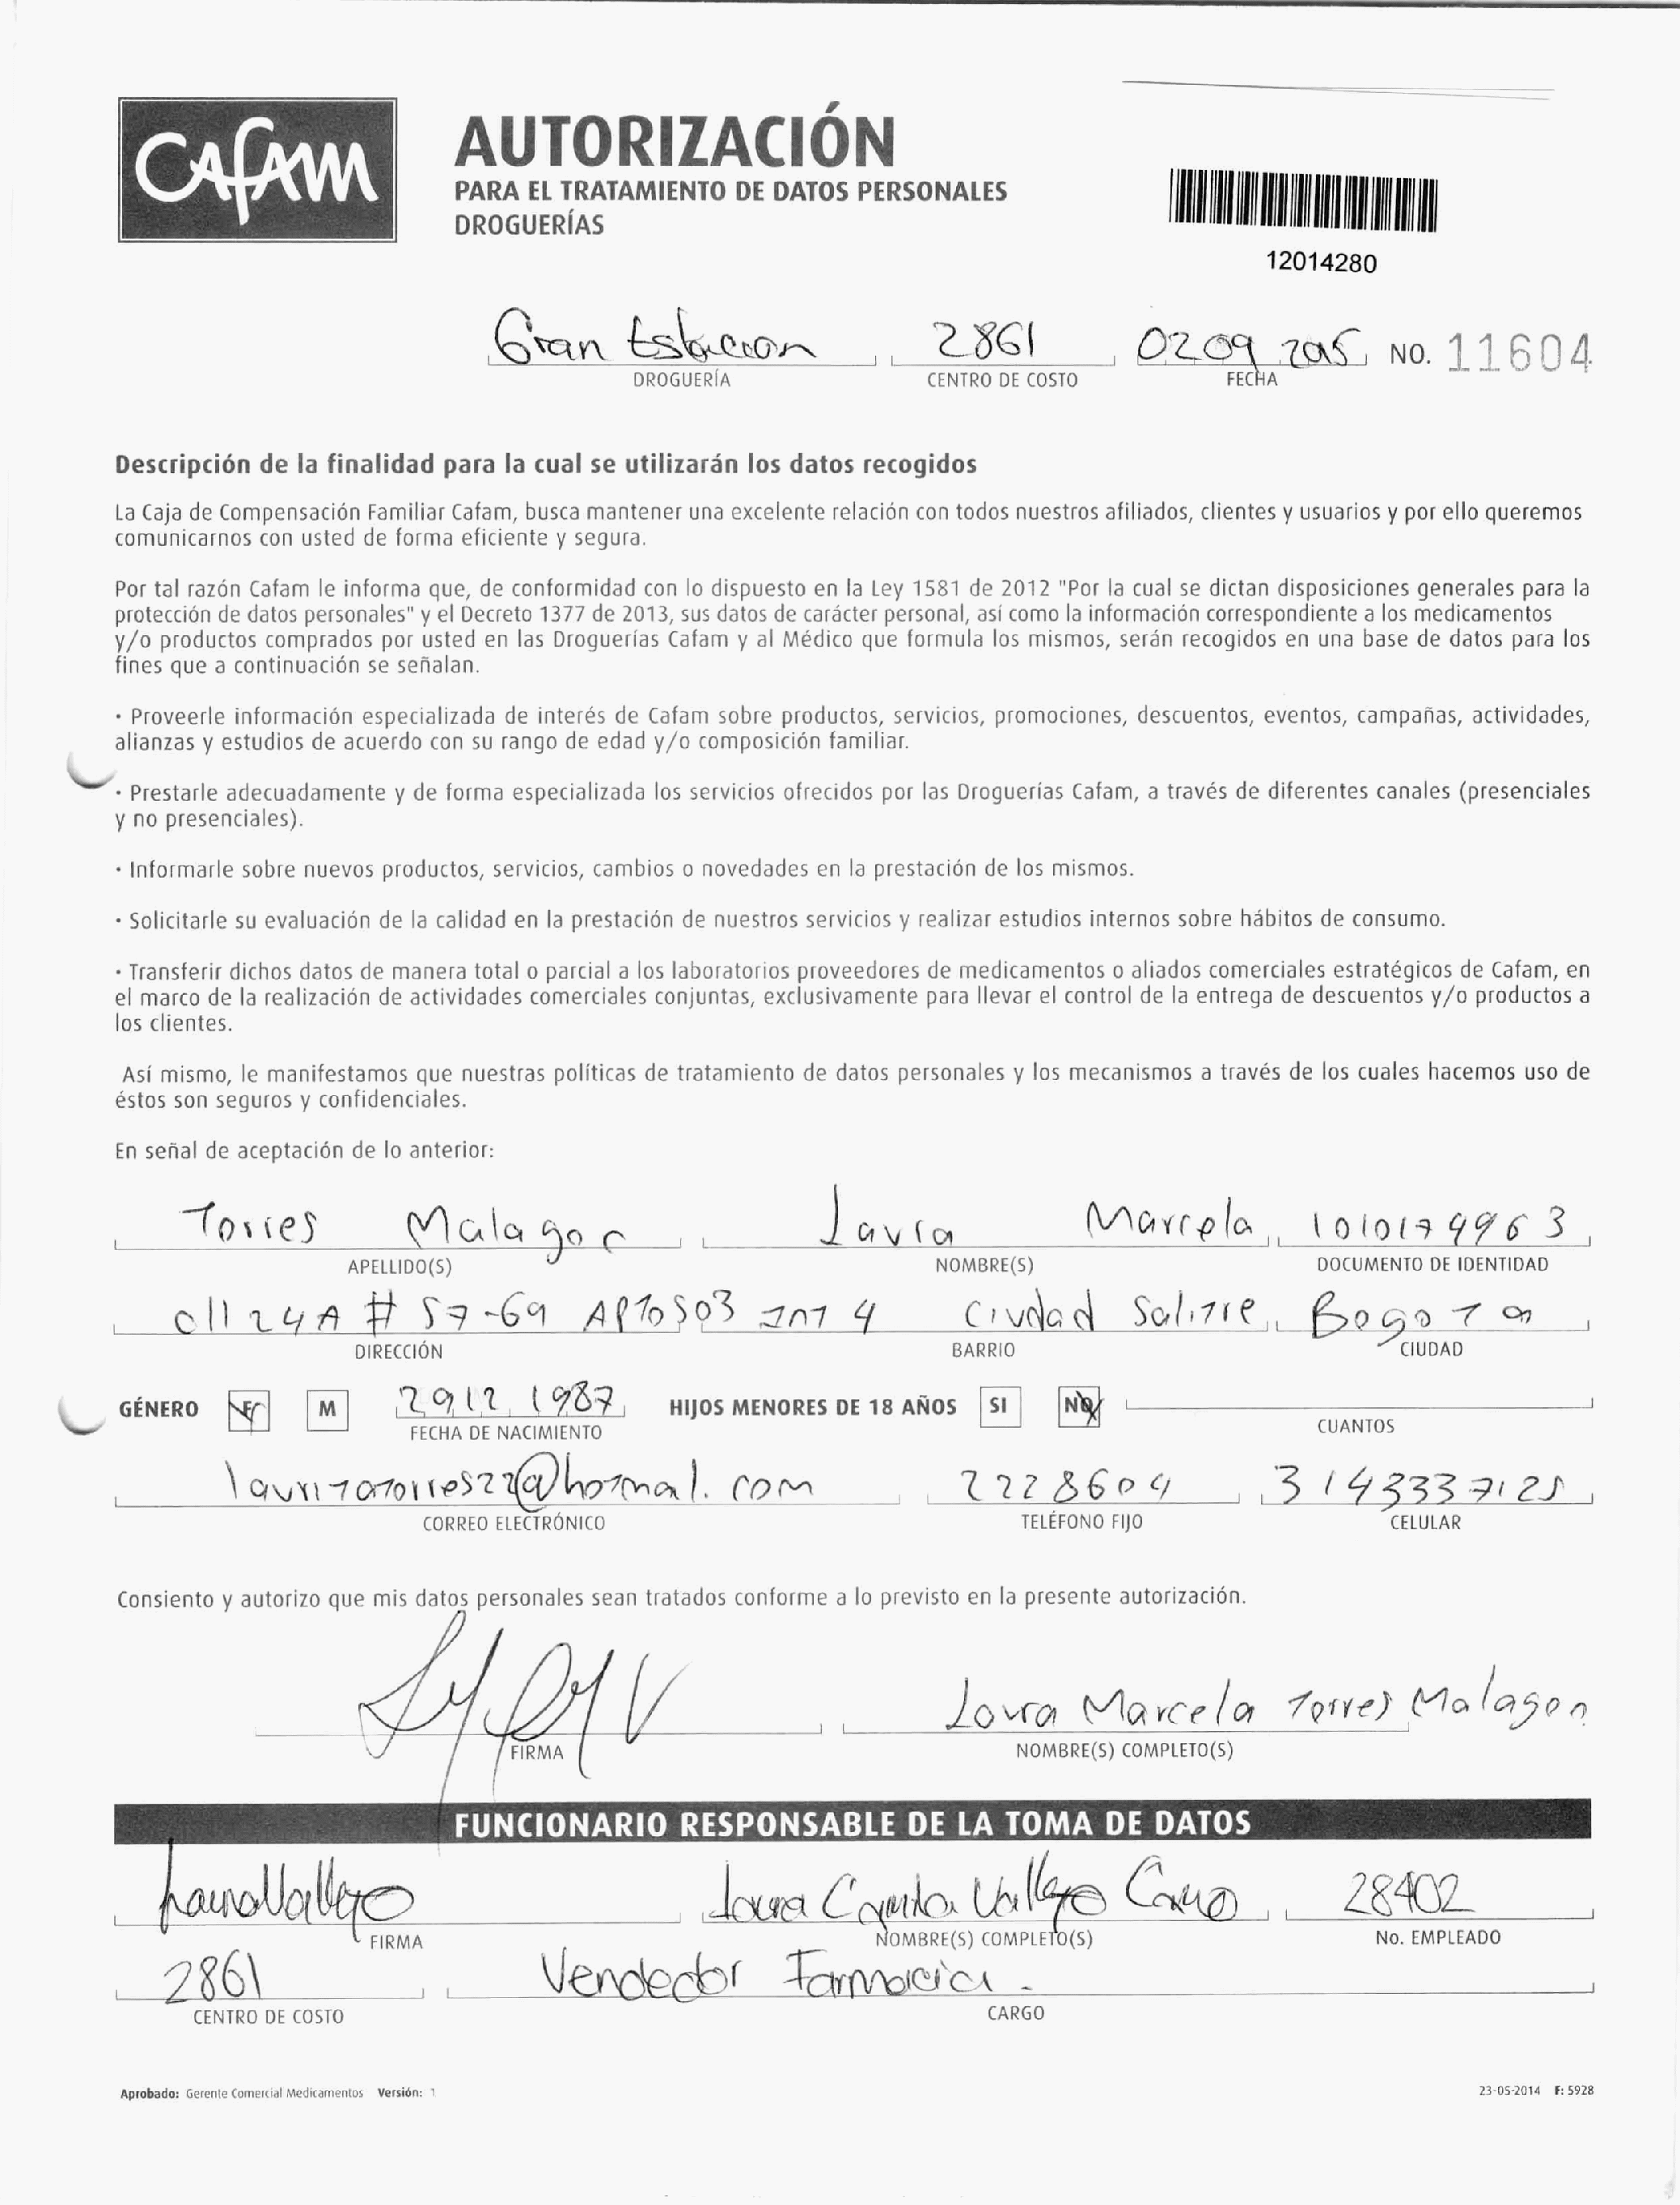 CAFAM
AUTORIZACIÓN
PARA EL TRATAMIENTO DE DATOS PERSONALES
DROGUERÍAS
12014280
Gran Estacion 2861 02 09 2015 NO. 11604
DROGUERÍA CENTRO DE COSTO FECHA
Descripción de la finalidad para la cual se utilizarán los datos recogidos
La Caja de Compensación Familiar Cafam, busca mantener una excelente relación con todos nuestros afiliados, clientes y usuarios y por ello queremos
comunicarnos con usted de forma eficiente y segura.
Por tal razón Cafam le informa que, de conformidad con lo dispuesto en la Ley 1581 de 2012 "Por la cual se dictan disposiciones generales para la
protección de datos personales" y el Decreto 1377 de 2013, sus datos de carácter personal, así como la información correspondiente a los medicamentos
y/o productos comprados por usted en las Droguerías Cafam y al Médico que formula los mismos, serán recogidos en una base de datos para los
fines que a continuación se señalan.
· Proveerle información especializada de interés de Cafam sobre productos, servicios, promociones, descuentos, eventos, campañas, actividades,
alianzas y estudios de acuerdo con su rango de edad y/o composición familiar.
· Prestarle adecuadamente y de forma especializada los servicios ofrecidos por las Droguerías Cafam, a través de diferentes canales (presenciales
y no presenciales).
· Informarle sobre nuevos productos, servicios, cambios o novedades en la prestación de los mismos.
· Solicitarle su evaluación de la calidad en la prestación de nuestros servicios y realizar estudios internos sobre hábitos de consumo.
· Transferir dichos datos de manera total o parcial a los laboratorios proveedores de medicamentos o aliados comerciales estratégicos de Cafam, en
el marco de la realización de actividades comerciales conjuntas, exclusivamente para llevar el control de la entrega de descuentos y/o productos a
los clientes.
Así mismo, le manifestamos que nuestras políticas de tratamiento de datos personales y los mecanismos a través de los cuales hacemos uso de
éstos son seguros y confidenciales.
En señal de aceptación de lo anterior:
Torres Malagon Laura Marcela 1010179963
APELLIDO(S) NOMBRE(S) DOCUMENTO DE IDENTIDAD
Cll 24A # 57-69 APTO 503 INT 4 Ciudad Salitre Bogota
DIRECCIÓN BARRIO CIUDAD
GÉNERO F M 29 12 1987 HIJOS MENORES DE 18 AÑOS SI NO
FECHA DE NACIMIENTO CUANTOS
lauritatorres22@hotmail.com 2228604 3143337125
CORREO ELECTRÓNICO TELÉFONO FIJO CELULAR
Consiento y autorizo que mis datos personales sean tratados conforme a lo previsto en la presente autorización.
Laura Marcela Torres Malagon
FIRMA NOMBRE(S) COMPLETO(S)
FUNCIONARIO RESPONSABLE DE LA TOMA DE DATOS
Laura Vallejo Laura Camila Vallejo 28402
FIRMA NOMBRE(S) COMPLETO(S) No. EMPLEADO
2861 Vendedor Farmacia.
CENTRO DE COSTO CARGO
Aprobado: Gerente Comercial Medicamentos Versión: 1 23-05-2014 F: 5928